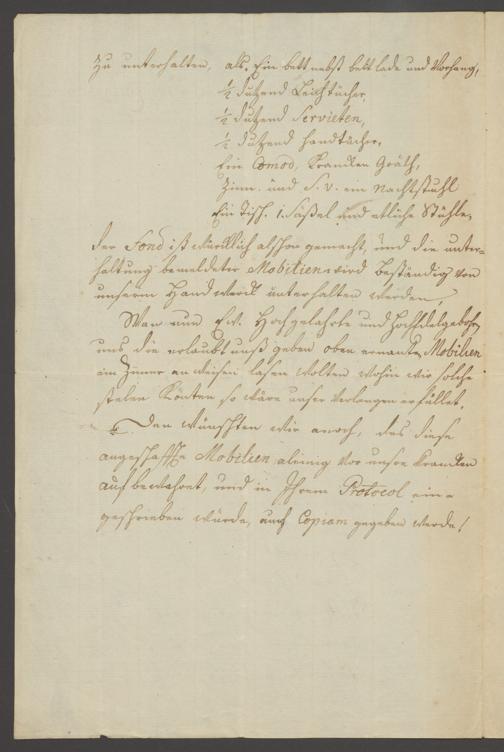 zu unterhalten, als, Ein bett nebst bett lade und Vorhang,
1/2 dutzend Leichtücher,
1/2 dutzend Servieten,
1/2 dutzend Handtücher,
Ein Comod, Krancken Gräth,
Zinn- und S. v. ein Nachtstuhl
Ein Tisch, 1. Säßel und etliche Stühle,
der Fond ist würcklich alschon gemacht, und die unter=
haltung bemeldeter Mobilien wird beständig von
unserm Handwerck unterhalten werden,
Wan nun Ew. Hochgelahrte und HochEdelgebohrn
uns die erlaubt nuß geben oben ernante Mobilien
ein Zimmer anweisen lasen wolten wohin wir solche
stelen Könten so wäre unser Verlangen erfüllet.
Den wünschten wir anoch, das diese
angeschaffte Mobilien aleinig vor unsre Krancken
aufbewahret, und in Ihrem Protocol ein=
geschrieben würde, auch Copiam gegeben werde!